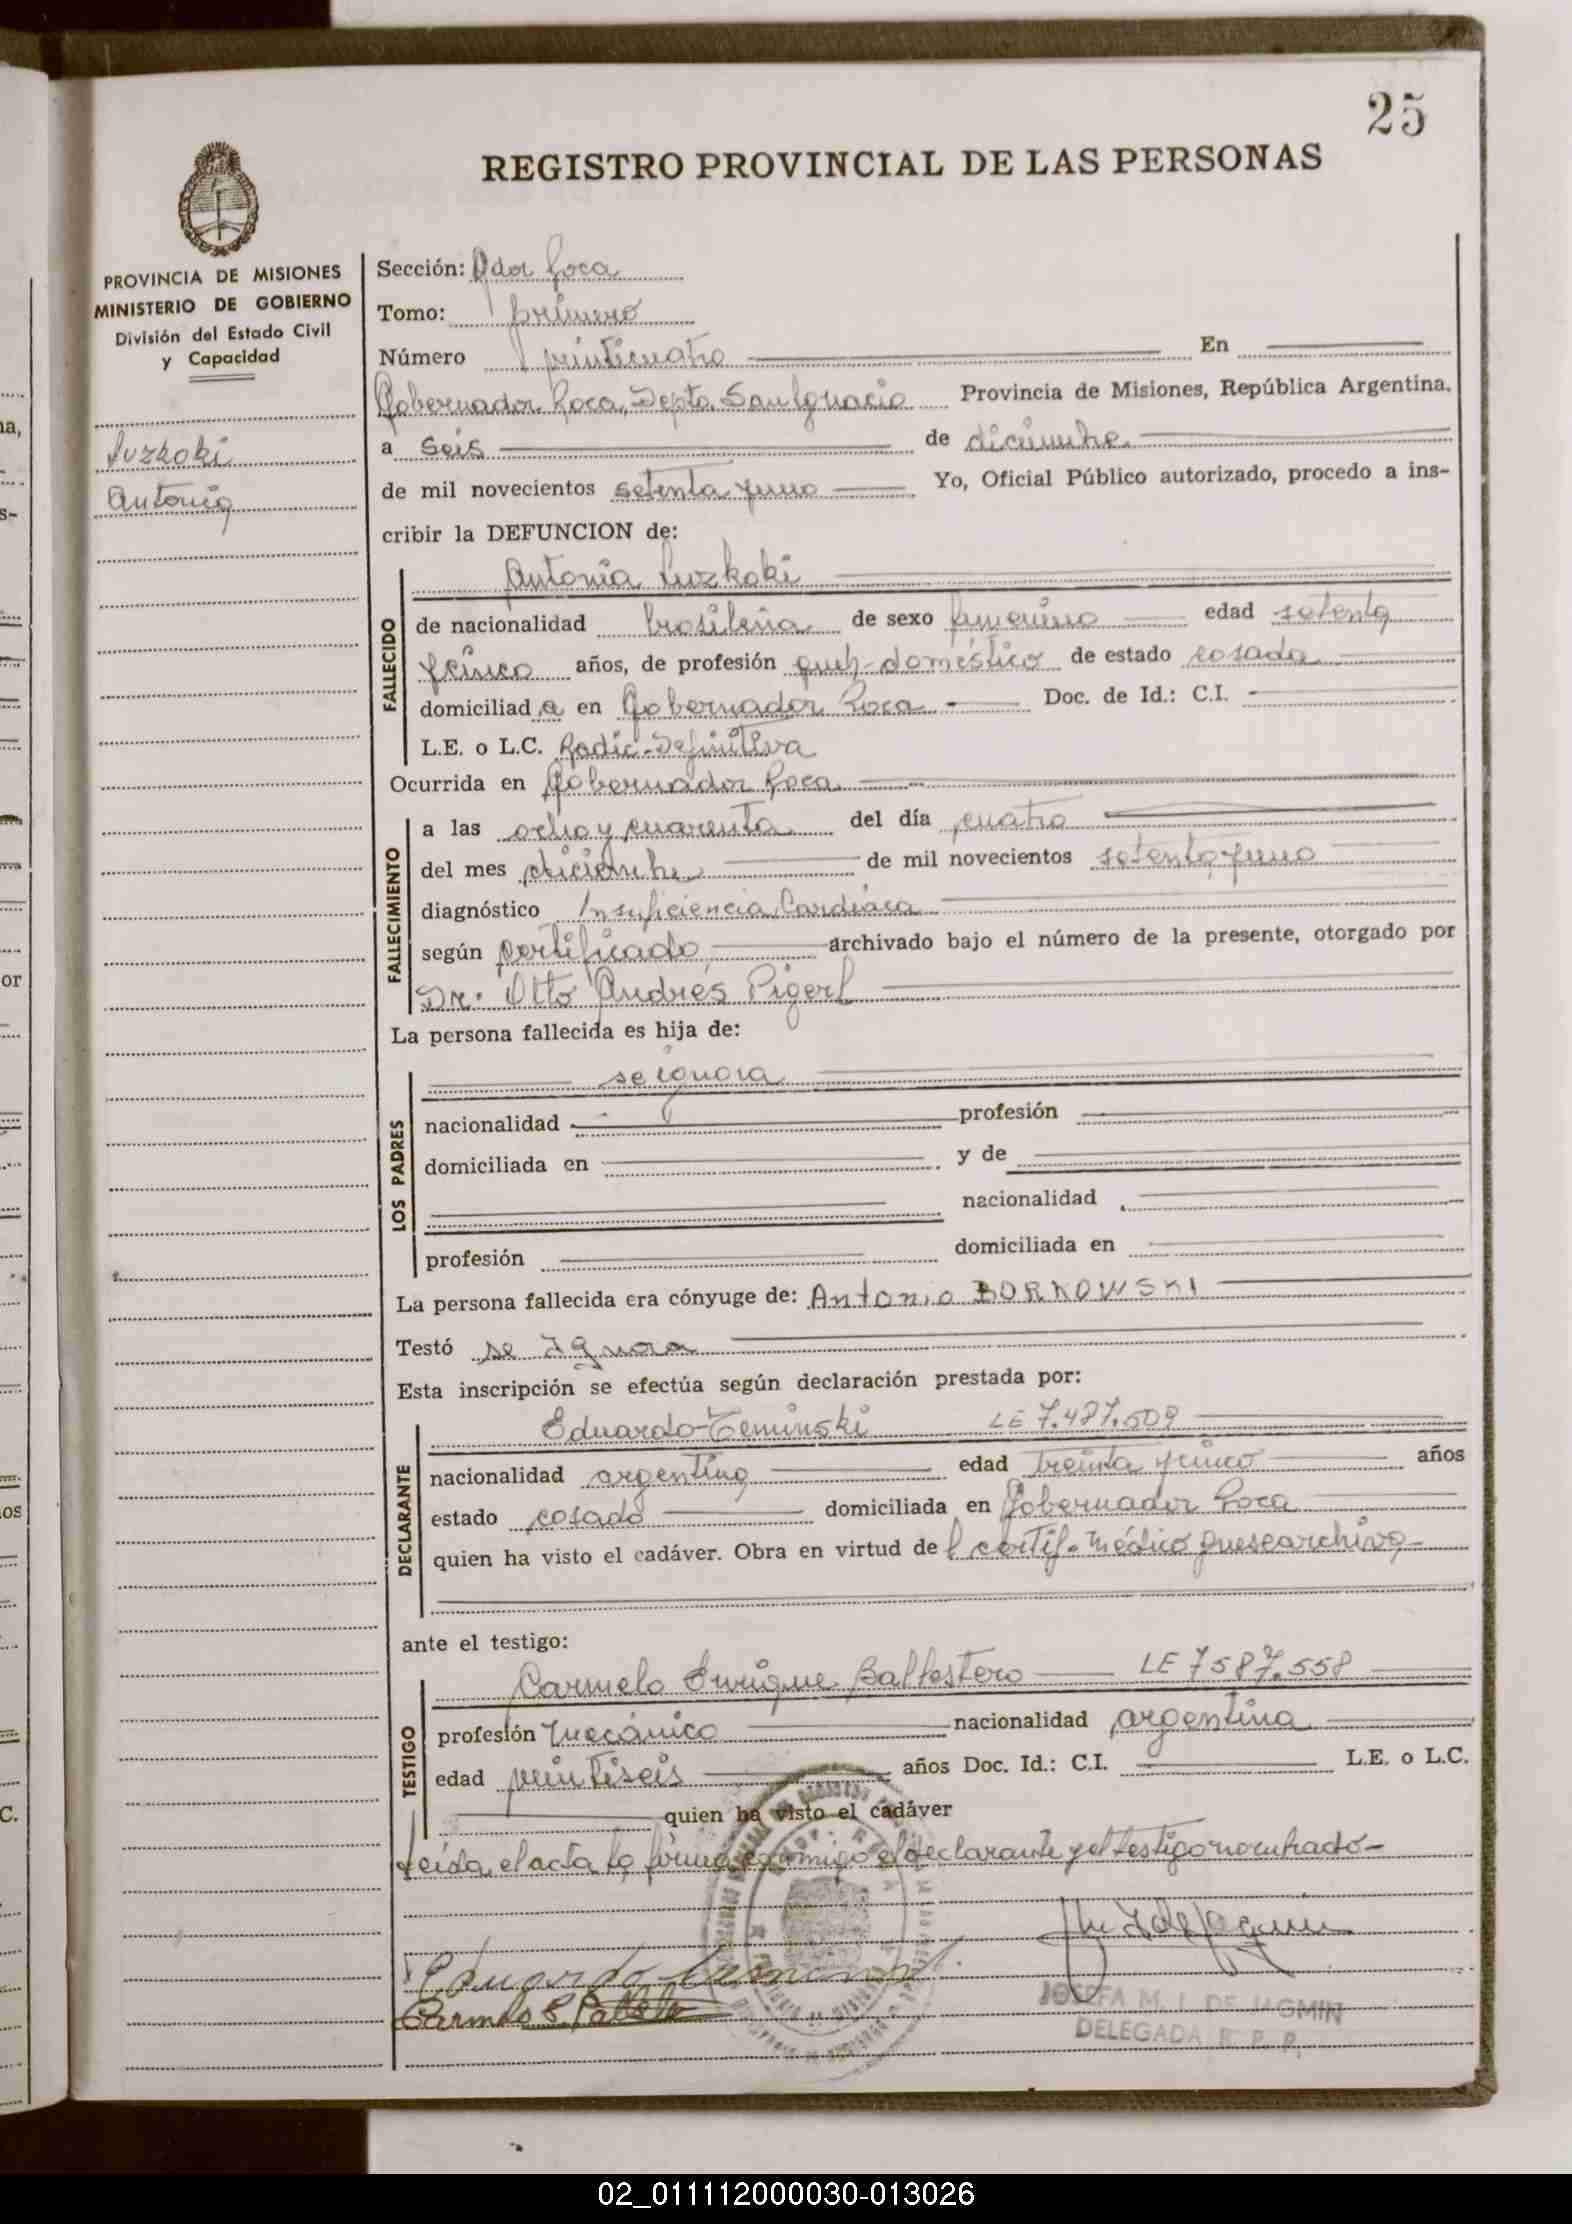 25
REGISTRO PROVINCIAL DE LAS PERSONAS
PROVINCIA DE MISIONES
MINISTERIO DE GOBIERNO
División del Estado Civil
y Capacidad
Luzkoki
Antonia
Sección: Gdor Roca
Tomo: primero
Número veinticuatro En
Gobernador Roca, Depto. San Ignacio Provincia de Misiones, República Argentina,
a seis de diciembre
de mil novecientos setenta y uno Yo, Oficial Público autorizado, procedo a ins-
cribir la DEFUNCION de:
FALLECIDO
Antonia Luzkoki
de nacionalidad brasileña de sexo femenino edad setenta
y cinco años, de profesión queh-doméstico de estado casada
domiciliada en Gobernador Roca Doc. de Id.: C.I.
L.E. o L.C. Radic-Definitiva
Ocurrida en Gobernador Roca
FALLECIMIENTO
a las ocho y cuarenta del día cuatro
del mes diciembre de mil novecientos setenta y uno
diagnóstico Insuficiencia Cardiáca
según certificado archivado bajo el número de la presente, otorgado por
Dr. Otto Andrés Pigerl
La persona fallecida es hija de:
LOS PADRES
se ignora
nacionalidad profesión
domiciliada en y de
nacionalidad
profesión domiciliada en
La persona fallecida era cónyuge de: Antonio BORKOWSKI
Testó se Ignora
Esta inscripción se efectúa según declaración prestada por:
DECLARANTE
Eduardo Zeminski LE 7.487.509
nacionalidad argentina edad treinta y cinco años
estado casado domiciliada en Gobernador Roca
quien ha visto el cadáver. Obra en virtud del certif. médico que se archiva
ante el testigo:
TESTIGO
Carmelo Enrique Ballestero LE 7587.558
profesión mecánico nacionalidad argentina
edad veintiseis años Doc. Id.: C.I. L.E. o L.C.
quien ha visto el cadáver
Leida el acta la firma conmigo el declarante y el testigo nombrado
Eduardo
Carmelo E.
JOSEFA M. I. DE JAGMIN
DELEGADA R. P. P.
02_011112000030-013026